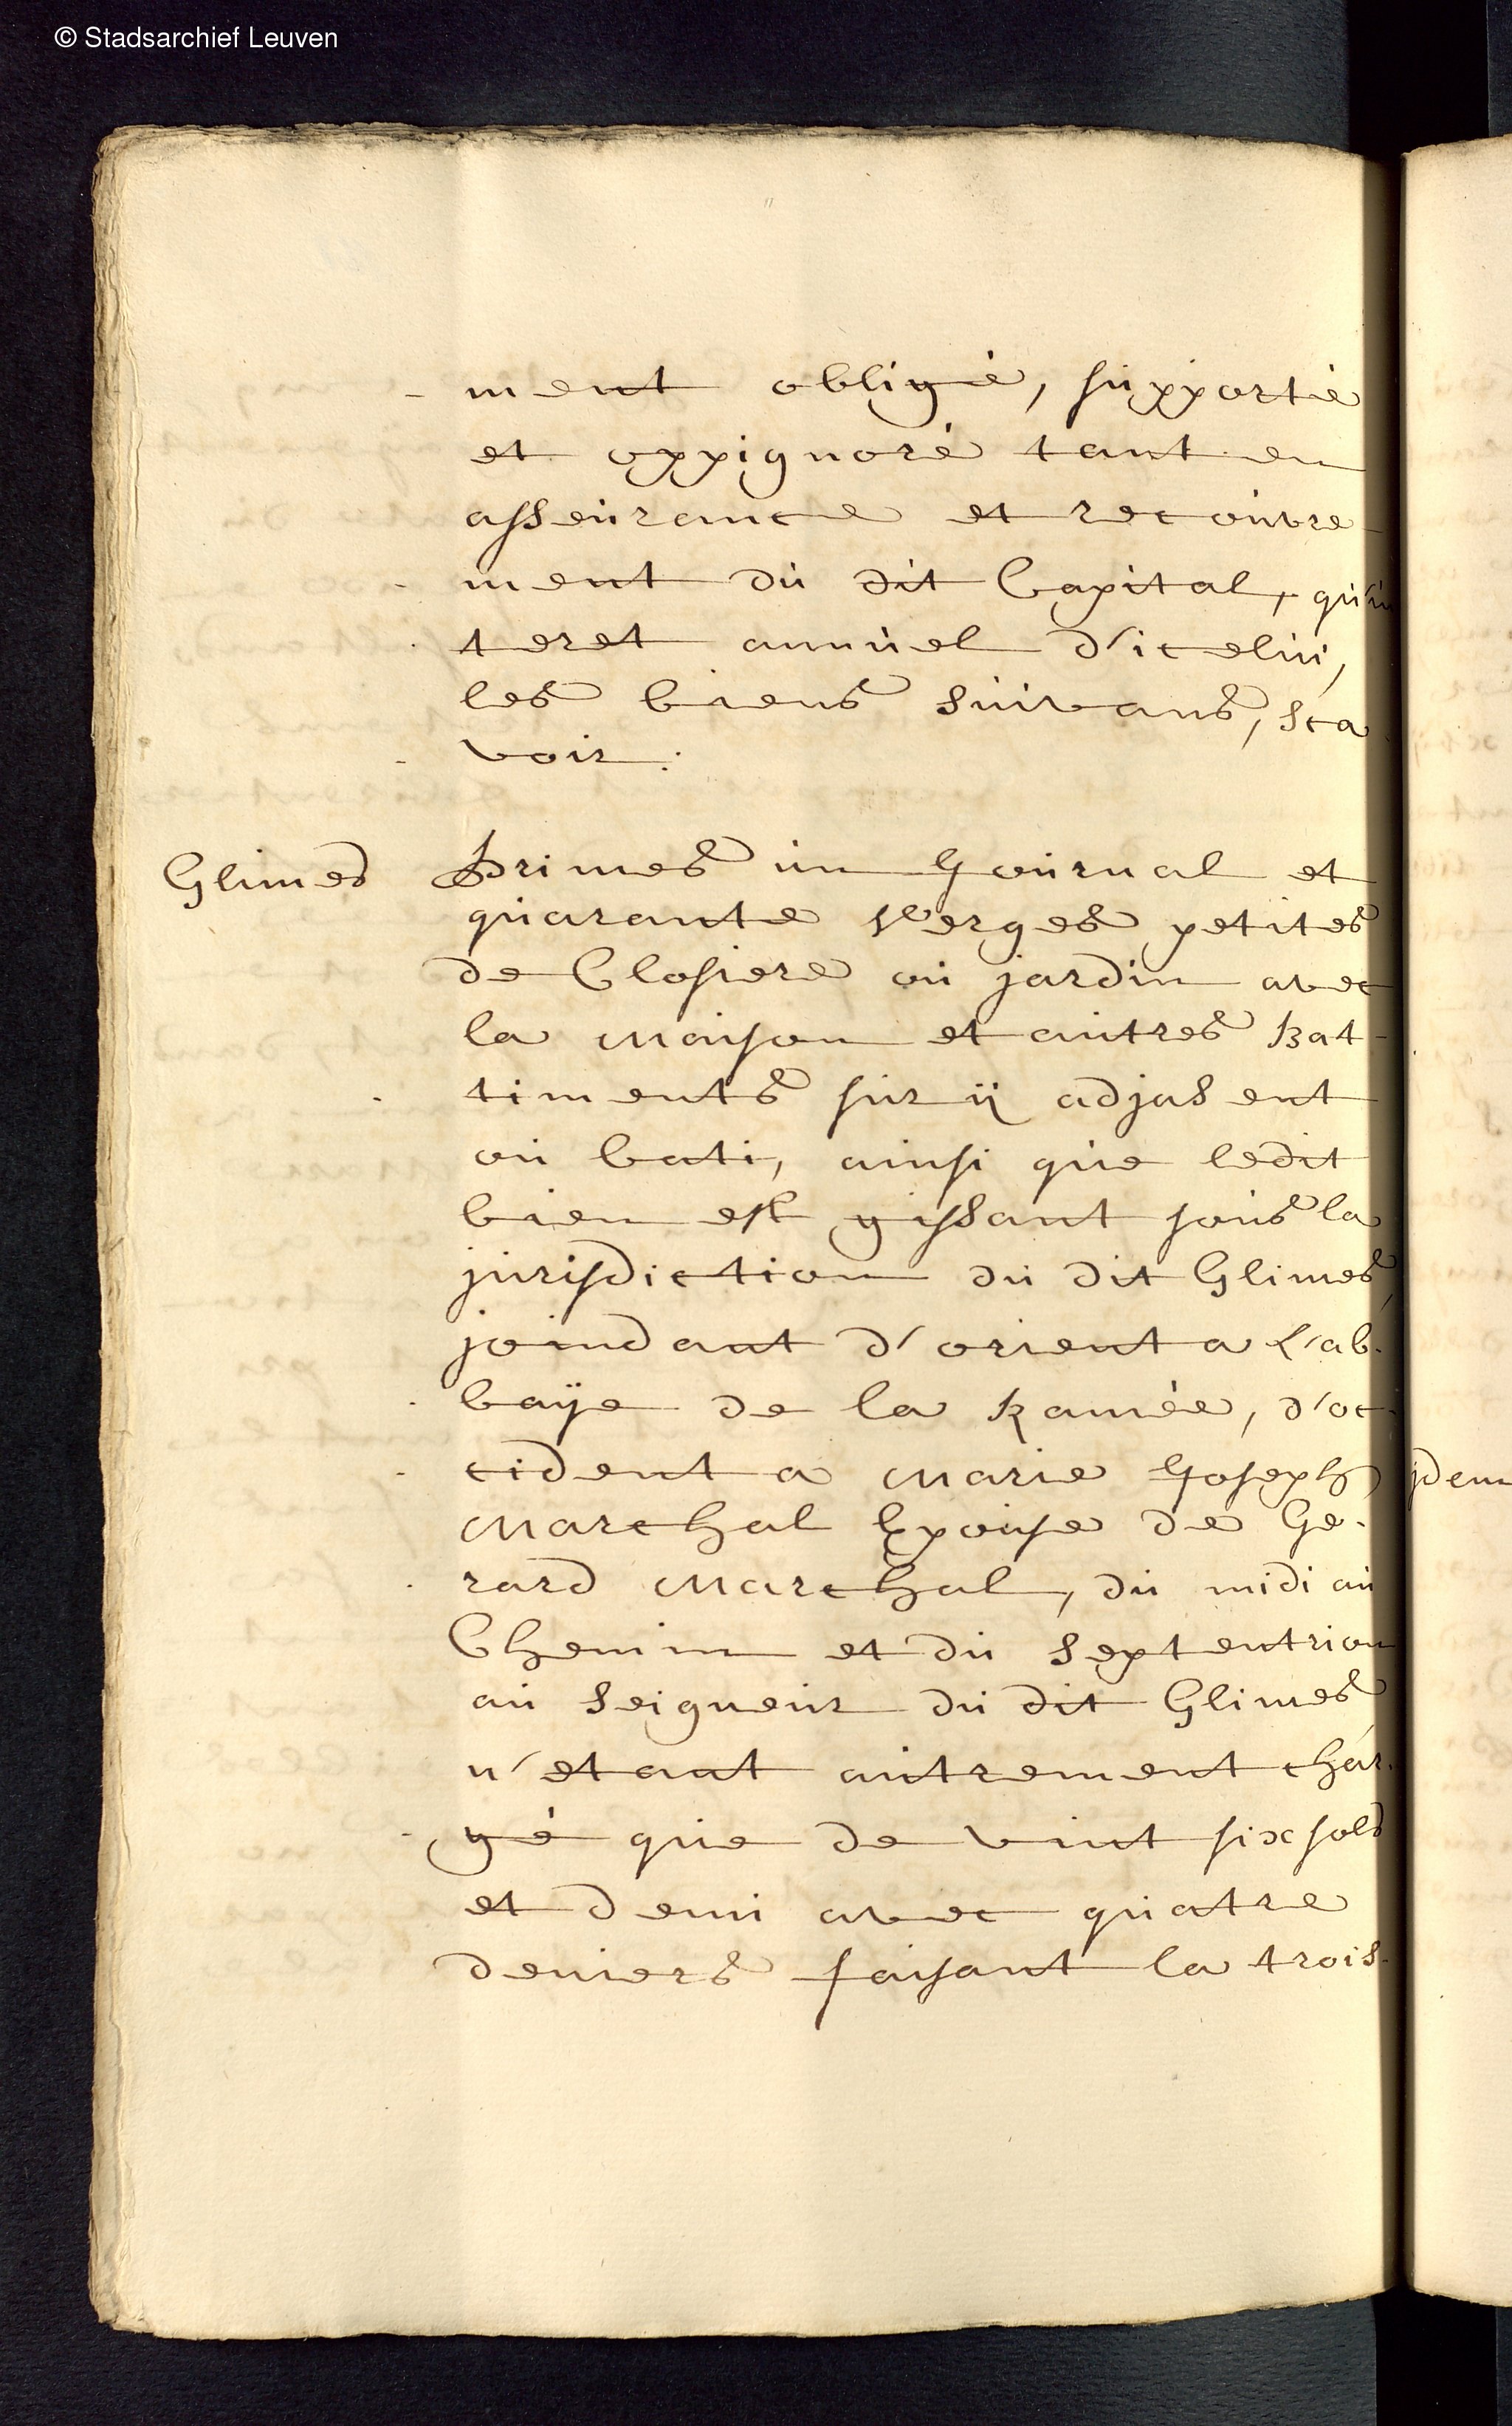 © Stadsarchief Leuven
- ment obligé, supporté
et oppignoré tant en
asseurance et recouvre-
- ment du dit Capital, qu'in
teret annuel d'icelui,
les biens suivans, sca
- voir:
Glimes
Primes un Journal et
quarante Verges petites
de Closiere ou jardin avec
la Maison et autres Bat-
timents sur ij adjasent
ou bati, ainsi que ledit
bien est gissant sous la
jurisdiction du dit Glimes,
joindant d'orient a l'ab-
baÿe de la Ramée, d'oc-
- cident a Marie Joseph
Marchal Epouse de Ge-
rard Marchal, du midi au
Chemin et du Septentrion
au Seigneur du dit Glimes,
n'etant autrement char-
- gé que de vint six sols
et demi avec quatre
deniers faisant la trois-
jdem